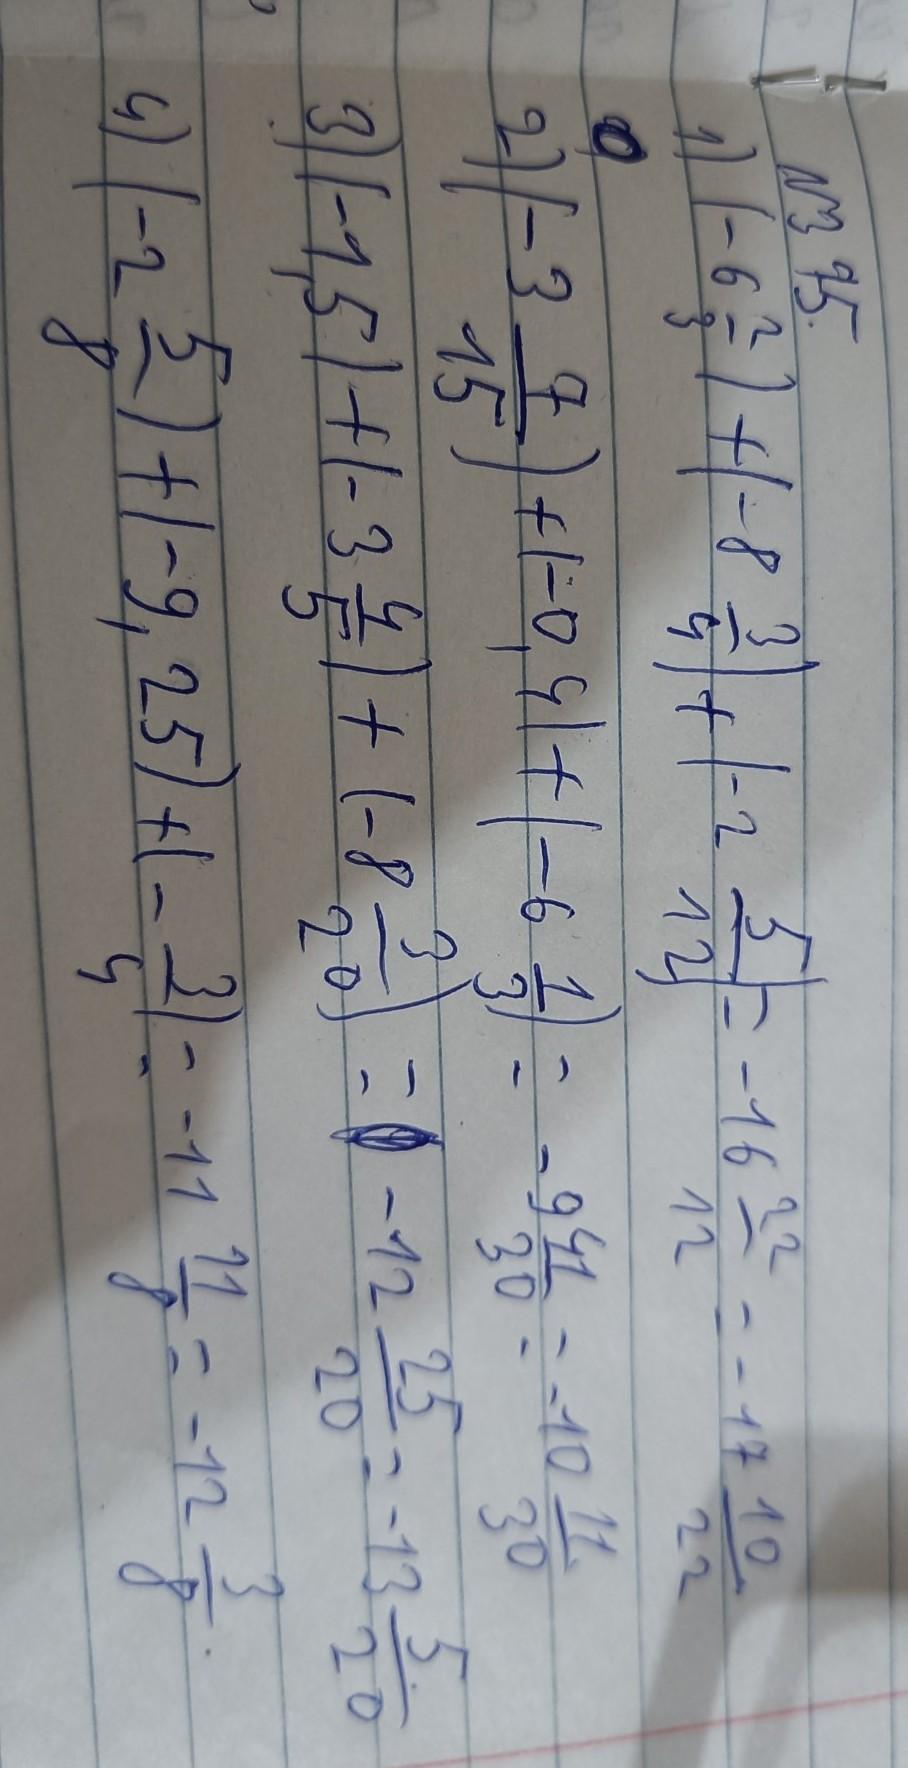 № 375.
1) (-6 2/3) + (-8 3/4) + (-2 5/12) = -16 22/12 = -17 10/22
2) (-3 7/15) + (-0,4) + (-6 1/3) = -9 41/30 = -10 11/30
3) (-1,5) + (-3 4/5) + (-8 3/20) = -12 25/20 = -13 5/20
4) (-2 5/8) + (-9,25) + (-3/4) = -11 11/8 = -12 3/8.